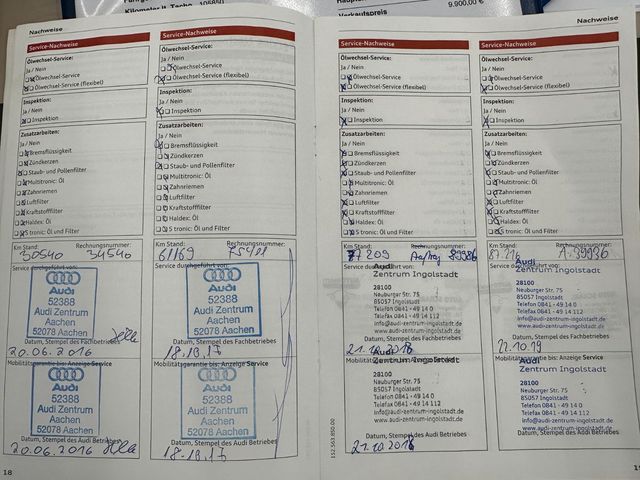 Kilometer lt. Tacho 105850
Verkaufspreis
9.900,00 €
Nachweise
Service-Nachweise
Ölwechsel-Service:
Ja / Nein
Ölwechsel-Service
Ölwechsel-Service (flexibel)
Inspektion:
Ja / Nein
Inspektion
Zusatzarbeiten:
Ja / Nein
Bremsflüssigkeit
Zündkerzen
Staub- und Pollenfilter
Multitronic: Öl
Zahnriemen
Luftfilter
Kraftstofffilter
Haldex: Öl
S tronic: Öl und Filter
Km Stand: Rechnungsnummer:
30540 34540
Service durchgeführt von:
Audi
52388
Audi Zentrum
Aachen
52078 Aachen
Datum, Stempel des Fachbetriebes
20.06.2016
Mobilitätsgarantie bis: Anzeige Service
Audi
52388
Audi Zentrum
Aachen
52078 Aachen
Datum, Stempel des Audi Betriebes
20.06.2016
18
Service-Nachweise
Ölwechsel-Service:
Ja / Nein
Ölwechsel-Service
Ölwechsel-Service (flexibel)
Inspektion:
Ja / Nein
Inspektion
Zusatzarbeiten:
Ja / Nein
Bremsflüssigkeit
Zündkerzen
Staub- und Pollenfilter
Multitronic: Öl
Zahnriemen
Luftfilter
Kraftstofffilter
Haldex: Öl
S tronic: Öl und Filter
Km Stand: Rechnungsnummer:
61169
Service durchgeführt von:
Audi
52388
Audi Zentrum
Aachen
52078 Aachen
Datum, Stempel des Fachbetriebes
18.10.17
Mobilitätsgarantie bis: Anzeige Service
Audi
52388
Audi Zentrum
Aachen
52078 Aachen
Datum, Stempel des Audi Betriebes
18.10.17
Nachweise
Service-Nachweise
Ölwechsel-Service:
Ja / Nein
Ölwechsel-Service
Ölwechsel-Service (flexibel)
Inspektion:
Ja / Nein
Inspektion
Zusatzarbeiten:
Ja / Nein
Bremsflüssigkeit
Zündkerzen
Staub- und Pollenfilter
Multitronic: Öl
Zahnriemen
Luftfilter
Kraftstofffilter
Haldex: Öl
S tronic: Öl und Filter
Km Stand: Rechnungsnummer:
77209
Service durchgeführt von:
Audi
Zentrum Ingolstadt
28100
Neuburger Str. 75
85057 Ingolstadt
Telefon 0841 - 49 14 0
Telefax 0841 - 49 14 112
info@audi-zentrum-ingolstadt.de
www.audi-zentrum-ingolstadt.de
Datum, Stempel des Fachbetriebes
Mobilitätsgarantie bis: Anzeige Service
Audi
Zentrum Ingolstadt
28100
Neuburger Str. 75
85057 Ingolstadt
Telefon 0841 - 49 14 0
Telefax 0841 - 49 14 112
info@audi-zentrum-ingolstadt.de
www.audi-zentrum-ingolstadt.de
Datum, Stempel des Audi Betriebes
152.563.8S0.00
Service-Nachweise
Ölwechsel-Service:
Ja / Nein
Ölwechsel-Service
Ölwechsel-Service (flexibel)
Inspektion:
Ja / Nein
Inspektion
Zusatzarbeiten:
Ja / Nein
Bremsflüssigkeit
Zündkerzen
Staub- und Pollenfilter
Multitronic: Öl
Zahnriemen
Luftfilter
Kraftstofffilter
Haldex: Öl
S tronic: Öl und Filter
Km Stand: Rechnungsnummer:
87.216 A-39936
Service durchgeführt von:
Audi
Zentrum Ingolstadt
28100
Neuburger Str. 75
85057 Ingolstadt
Telefon 0841 - 49 14 0
Telefax 0841 - 49 14 112
info@audi-zentrum-ingolstadt.de
www.audi-zentrum-ingolstadt.de
Datum, Stempel des Fachbetriebes
22.10.19
Mobilitätsgarantie bis: Anzeige Service
Audi
Zentrum Ingolstadt
28100
Neuburger Str. 75
85057 Ingolstadt
Telefon 0841 - 49 14 0
Telefax 0841 - 49 14 112
info@audi-zentrum-ingolstadt.de
www.audi-zentrum-ingolstadt.de
Datum, Stempel des Audi Betriebes